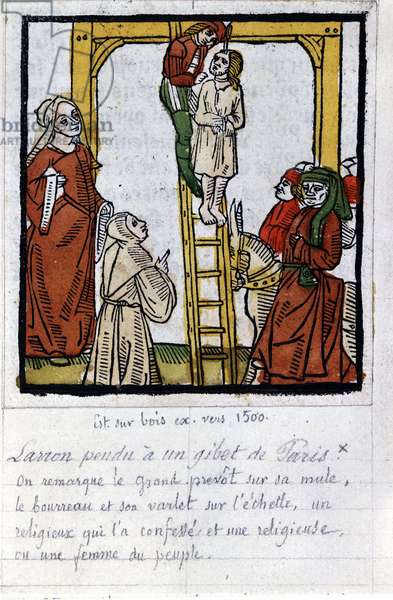 bridgeman
Est sur bois ex. vers 1500.
Larron pendu à un gibet de Paris. x
On remarque le grand prevôt sur sa mule,
le bourreau et son varlet sur l'échelle, un
religieux qui l'a confessé et une religieuse,
ou une femme du peuple.